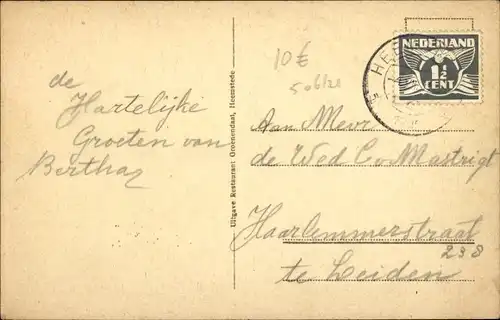 de
Hartelijke
Groeten van
Bertha
Uitgave Restaurant: Groenendaal, Heemstede
10 €
NEDERLAND
1½
CENT
Aan Mevr
de Wed C v Mastrigt
Haarlemmerstraat
238
te Leiden